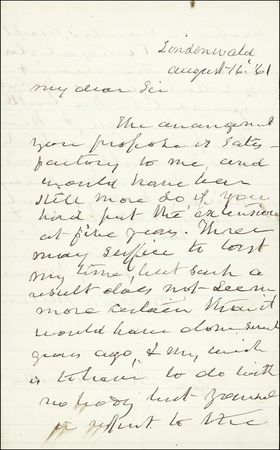 Lindenwald
August 16. '61
My dear Sir
The arrangement
you propose is satis-
factory to me, and
would have been
still more so if you
had put the extension
at five years. Three
may suffice to last
my time, but such a
result does not seem
more certain than it
would have done several
years ago, & my wish
is to have to do with
nobody but yourself
in respect to the